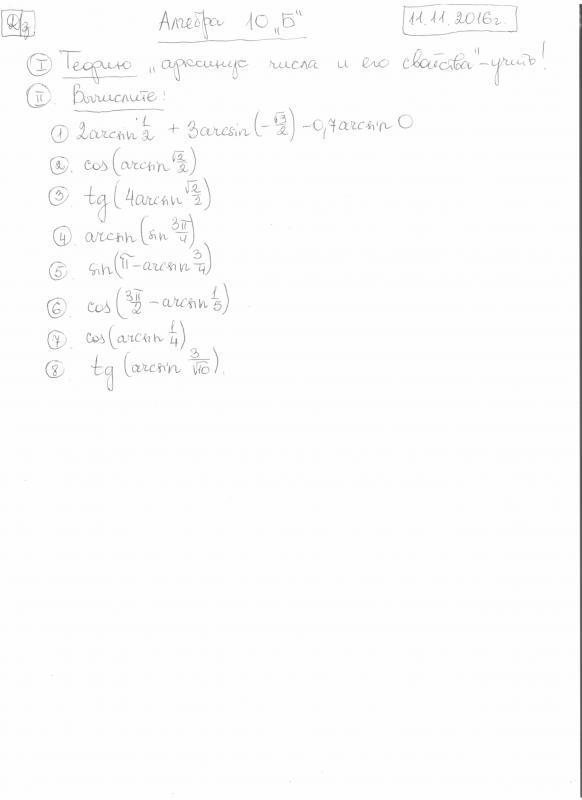 Д/з Алгебра 10 „Б“ 11.11.2016г.
I Теорию „арксинус числа и его свойства“ - учить!
II Вычислите:
1 2arcsin 1/2 + 3arcsin(-√3/2) - 0,7arcsin 0
2. cos(arcsin √2/2)
3 tg(4arcsin √2/2)
4 arcsin(sin 3π/4)
5 sin(π - arcsin 3/4)
6 cos(3π/2 - arcsin 1/5)
7 cos(arcsin 1/4)
8 tg(arcsin 3/√10).